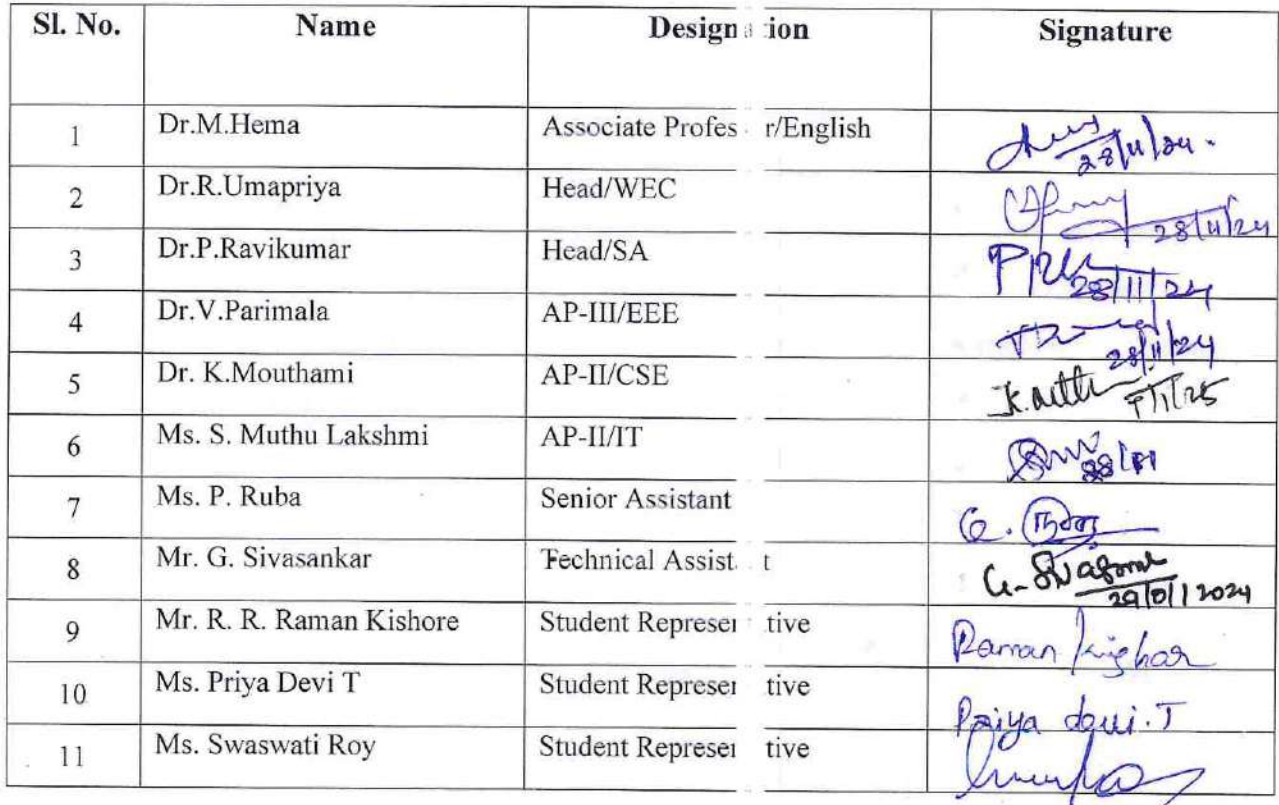 Sl. No. Name Designation Signature
1 Dr.M.Hema Associate Profes r/English
28/11/24.
2 Dr.R.Umapriya Head/WEC
28/11/24
3 Dr.P.Ravikumar Head/SA
28/11/24
4 Dr.V.Parimala AP-III/EEE
28/11/24
5 Dr. K.Mouthami AP-II/CSE
6 Ms. S. Muthu Lakshmi AP-II/IT
28/11
7 Ms. P. Ruba Senior Assistant
8 Mr. G. Sivasankar Technical Assist t
9 Mr. R. R. Raman Kishore Student Represen tive
Raman
10 Ms. Priya Devi T Student Represen tive
Priya devi.T
11 Ms. Swaswati Roy Student Represen tive